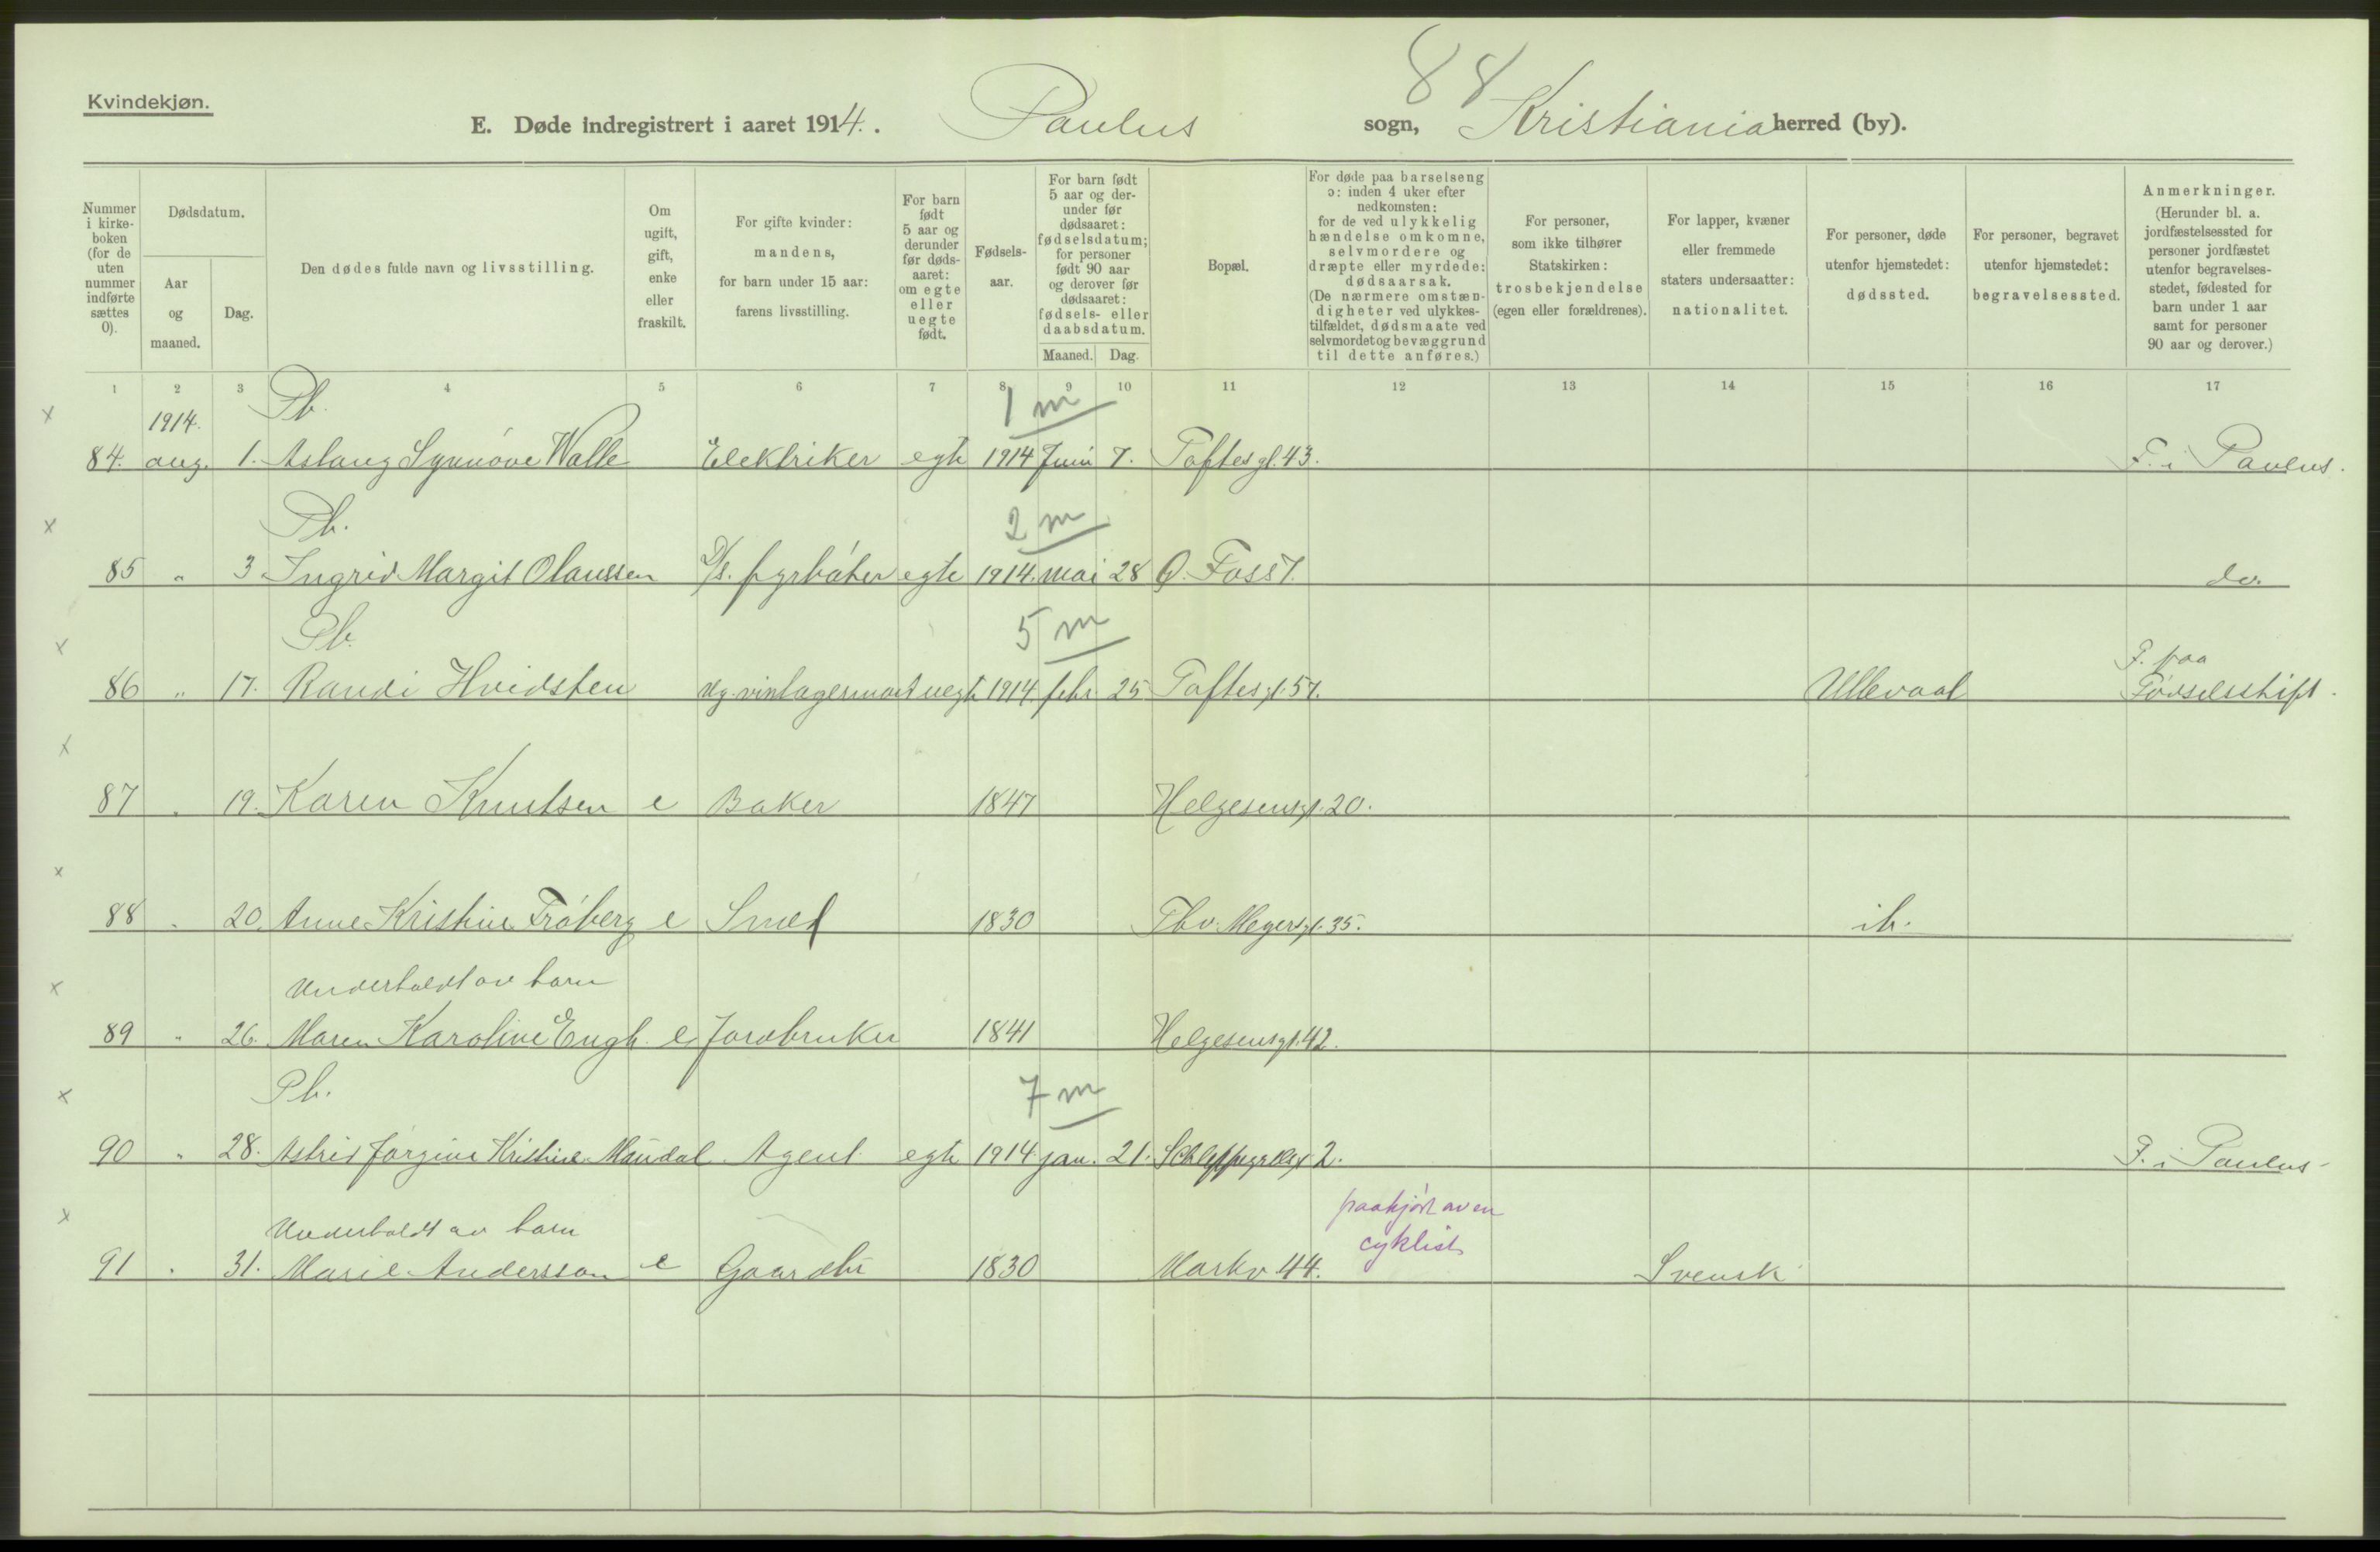 88
Kvindekjøn.
E. Døde indregistrert i aaret 1914. Paulus sogn, Kristiania herred (by).
Nummer i kirke- boken (for de uten nummer indførte sættes 0).
Dødsdatum.
Aar og maaned.
Dag.
Den dødes fulde navn og livsstilling.
Om ugift, gift, enke eller fraskilt.
For gifte kvinder: mandens, for barn under 15 aar: farens livsstilling.
For barn født 5 aar og derunder før døds- aaret: om egte eller uegte født.
Fødsels- aar.
For barn født 5 aar og der- under før dødsaaret: fødselsdatum; for personer født 90 aar og derover før dødsaaret: fødsels- eller daabsdatum.
Maaned. Dag.
Bopæl.
For døde paa barselseng ɔ: inden 4 uker efter nedkomsten: for de ved ulykkelig hændelse omkomne, selvmordere og dræpte eller myrdede: dødsaarsak. (De nærmere omstæn- digheter ved ulykkes- tilfældet, dødsmaate ved selvmordet og bevæggrund til dette anføres.)
For personer, som ikke tilhører Statskirken: trosbekjendelse (egen eller forældrenes).
For lapper, kvæner eller fremmede staters undersaatter: nationalitet.
For personer, døde utenfor hjemstedet: dødssted.
For personer, begravet utenfor hjemstedet: begravelsessted.
Anmerkninger. (Herunder bl. a. jordfæstelsessted for personer jordfæstet utenfor begravelses- stedet, fødested for barn under 1 aar samt for personer 90 aar og derover.)
1 2 3 4 5 6 7 8 9 10 11 12 13 14 15 16 17
x 1914. Pb. 1 m
84. aug. 1. Aslaug Synnøve Walle Elektriker egte 1914 Juni 7. Toftesgt. 43. F. i Paulus.
x Pb. 2 m
85 " 3 Ingrid Margit Olaussen D/s. fyrbøter egte 1914. mai 28 Ø. Foss 7. do.
x Pb. 5 m F. paa
86 " 17. Randi Hvidsten uegte 1914. febr. 25 Toftesgt. 57. Ullevaal Fødselsstift.
x
87 " 19. Karen Knutsen e Baker 1847 Helgesensgt. 20.
x
88 " 20. Anne Kristine Frøberg e Smed 1830 Thv. Meyersgt. 35. ib.
x Underholdt av barn
89 " 26. Maren Karoline Engh e Jordbruker 1841 Helgesensgt. 42.
x Pb. 7 m
90 " 28. Astrid Jørgine Kristine Mandal Agent egte 1914 jan. 21. Schleppegrelsgt 2. F. i Paulus
x Underholdt av barn paakjørt av en cyklist
91 " 31. Marie Andersson e Gaardbr 1830 Markv 44. Svensk